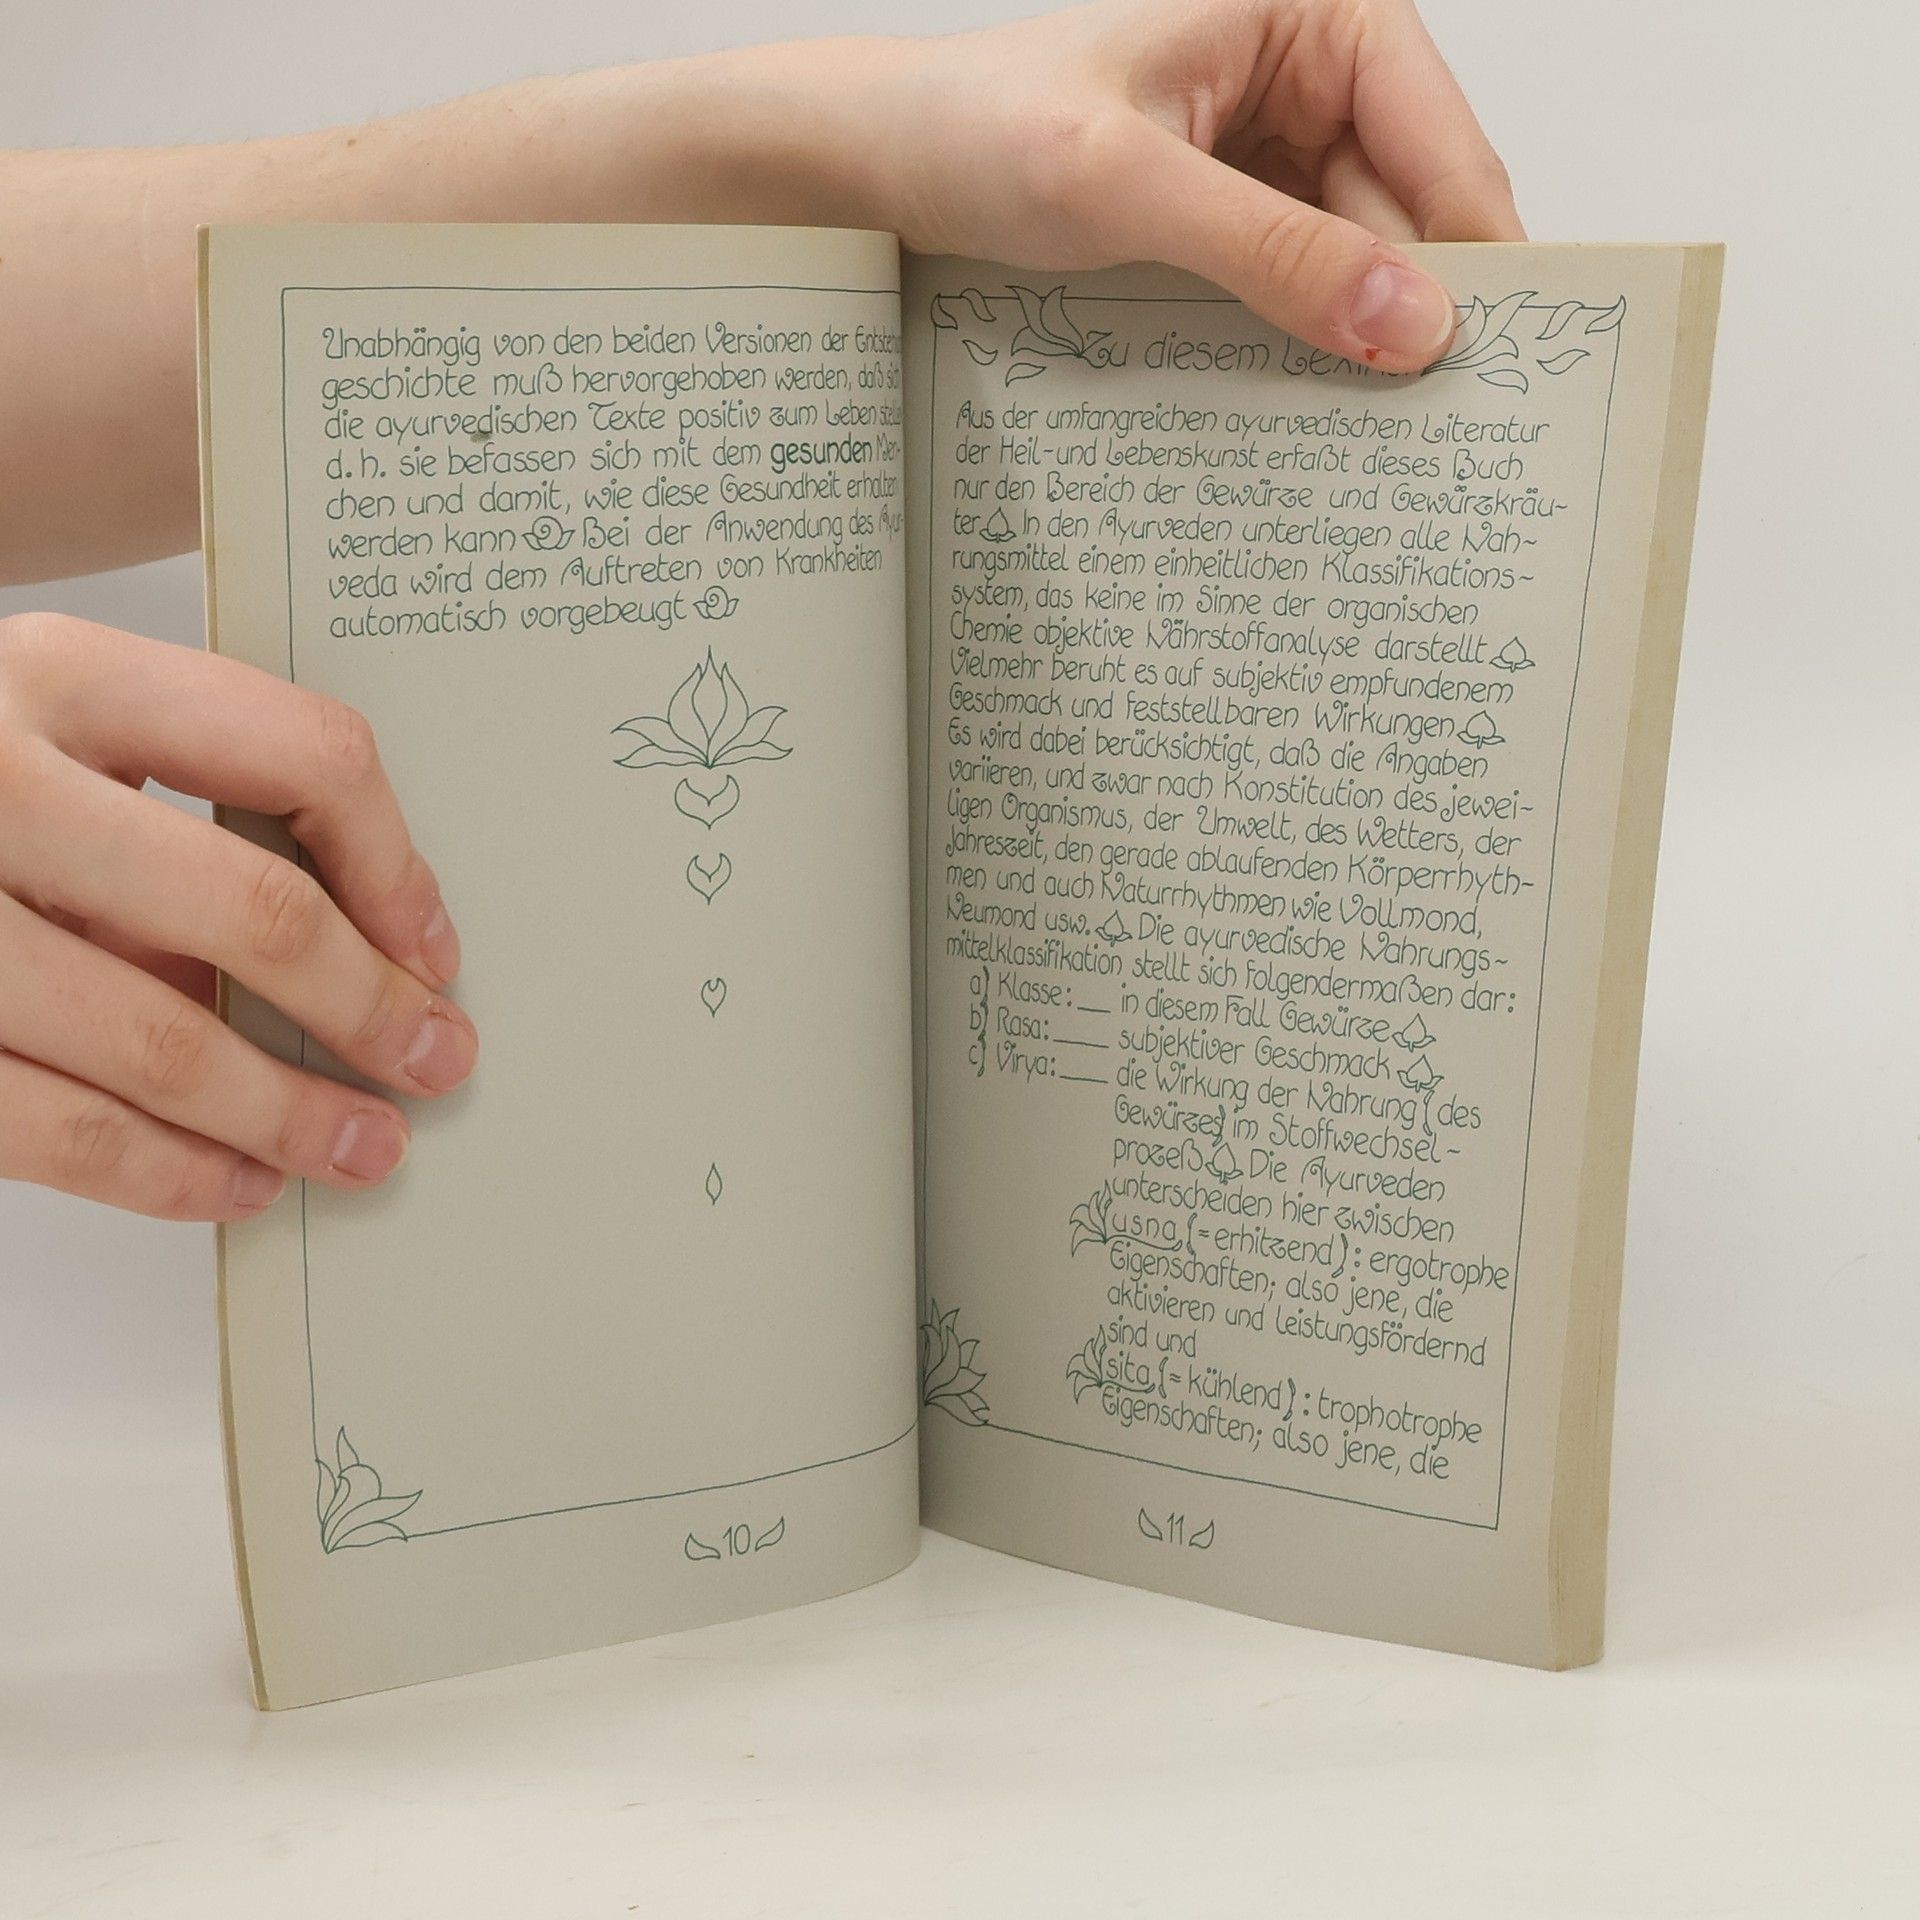 Unabhängig von den beiden Versionen der
geschichte muß hervorgehoben werden, daß
die ayurvedischen Texte positiv zum Leben
d.h. sie befassen sich mit dem gesunden Men-
chen und damit, wie diese Gesundheit erhalten
werden kann Bei der Anwendung des Ayur-
veda wird dem Auftreten von Krankheiten
automatisch vorgebeugt
10
Zu diesem
Aus der umfangreichen ayurvedischen Literatur
der Heil- und Lebenskunst erfaßt dieses Buch
nur den Bereich der Gewürze und Gewürzkräu-
ter In den Ayurveden unterliegen alle Nah-
rungsmittel einem einheitlichen Klassifikations-
system, das keine im Sinne der organischen
Chemie objektive Nährstoffanalyse darstellt
Vielmehr beruht es auf subjektiv empfundenem
Geschmack und feststellbaren Wirkungen
Es wird dabei berücksichtigt, daß die Angaben
variieren, und zwar nach Konstitution des jewei-
ligen Organismus, der Umwelt, des Wetters, der
Jahreszeit, den gerade ablaufenden Körperrhyth-
men und auch Naturrhythmen wie Vollmond,
Neumond usw. Die ayurvedische Nahrungs-
mittelklassifikation stellt sich folgendermaßen dar:
a) Klasse: __ in diesem Fall Gewürze
b) Rasa: __ subjektiver Geschmack
c) Virya: __ die Wirkung der Nahrung (des
Gewürzes) im Stoffwechsel-
prozeß Die Ayurveden
unterscheiden hier zwischen
usna (=erhitzend): ergotrophe
Eigenschaften; also jene, die
aktivieren und leistungsfördernd
sind und
sita (=kühlend): trophotrophe
Eigenschaften; also jene, die
11